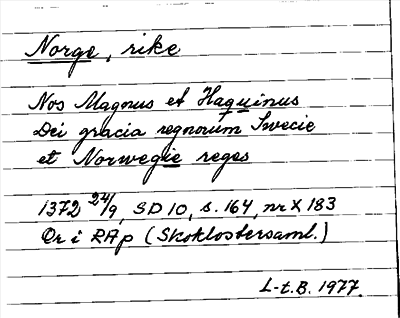 Norge, rike
Nos Magnus et Haquinus
Dei gracia regnorum Swecie
et Norwegie reges
1372 24/9, SD 10, s. 164, nr X 183
Or i RAp (Skoklostersaml.)
L-t.B. 1977.